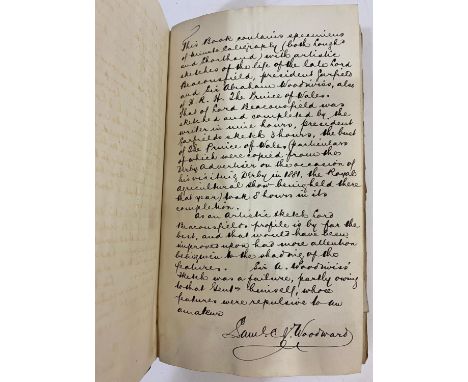 This Book contains specimens
of Minute Caligraphy (both Longh
and Shorthand) with artistic
sketches of the life of the late Lord
Beaconsfield, president Garfield
and Sir Abraham Woodwiss, also
of H. R. H. The Prince of Wales.
That of Lord Beaconsfield was
sketched and completed by the
writer in nine hours, president
Garfields sketch 3 hours, the bust
of The Prince of Wales (particulars
of which were copied from the
Derby Advertiser on the occasion of
his visiting Derby in 1881, the Royal
agricultural show being held there
that year) took 8 hours in its
completion.
As an artistic sketch Lord
Beaconsfields profile is by far the
best, and that would have been
improved upon had more attention
been given to the shading of the
features. Sir A. Woodwiss'
sketch was a failure, partly owing
to that Gentn himself, whose
features were repulsive to an
amateur
Saml. C. J. Woodward